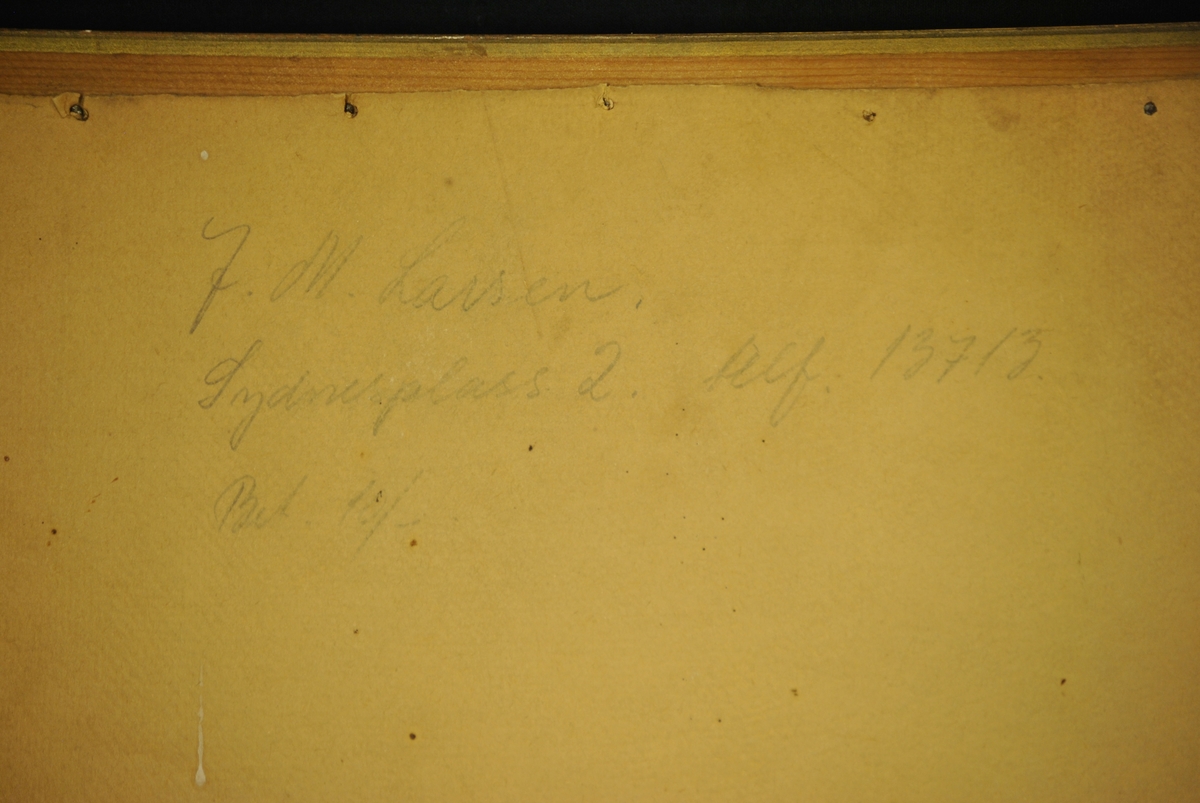 J. M. Larsen.
Sydnesplass 2. Tlf. 13713.
Bet.